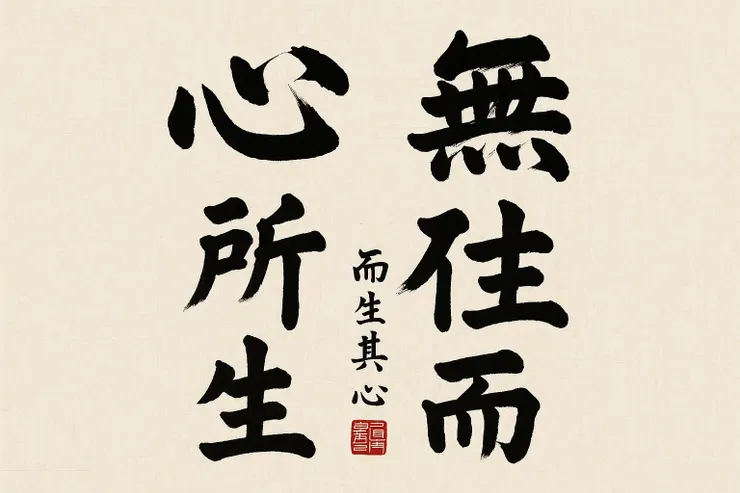 無住而
而生其心
心所生